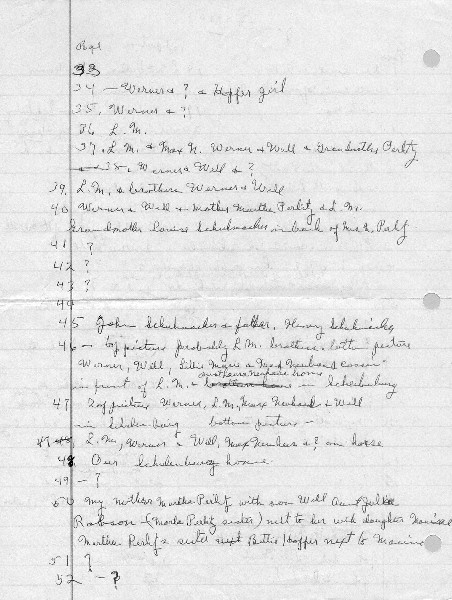 Page
33
34 - Werner & ? & Hoffer girl
35. Werner & ?
36 L.M.
37. L.M. & Max N. Werner & Well & Grandmother Perlitz
38. Werner & Well & ?
39. L.M. & brothers Werner & Well
40 Werner & Well & Mother Martha Perlitz & L.M.
Grandmother Louise Schuhmacher in back of
41 ?
42 ?
43 ?
44
45 John Schuhmacher & father, Henry
46 - top picture probably L.M. brothers, bottom picture
Werner, Well, Marie & Max Neuhaus cousin
in front of L.M. & in Schulenburg
47 Top picture Werner, L.M, Max Neuhaus & Well
in Schulenburg bottom picture -
L.M, Werner & Well, Max Neuhaus & ? on horse
48. Our Schulenburg home
49 - ?
50 My mother Martha Perlitz with son Well Aunt
Robson - (Martha Perlitz sister) next to her with daughter
Martha Perlitz sister next Bettie Hoffer next to
51 ?
52 - ?